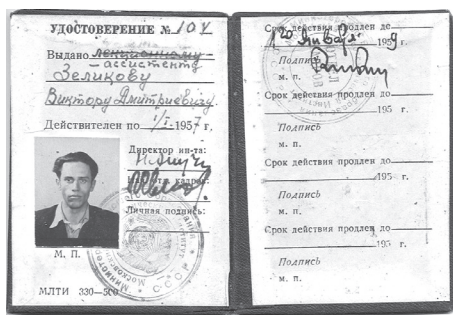 УДОСТОВЕРЕНИЕ № 104
Выдано
ассистенту
Зеликову
Виктору Дмитриевичу
Действителен по 1/I - 1957 г.
Директор ин-та:
кадров:
Личная подпись:
М. П.
МЛТИ 330—500
Срок действия продлен до
1го Января 1959 г.
Подпись
м. п.
Срок действия продлен до
195 г.
Подпись
м. п.
Срок действия продлен до
195 г.
Подпись
м. п.
Срок действия продлен до
195 г.
Подпись
м. п.